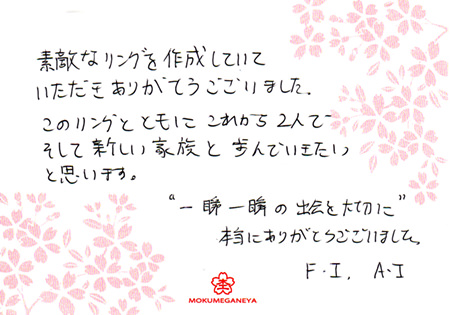 素敵なリングを作成していて
いただきありがとうございました。
このリングとともに これから 2人で
そして新しい家族と歩んでいきたい
と思います。
“一瞬一瞬の出会を大切に”
本当にありがとうございました。
F・I, A・I
MOKUMEGANEYA